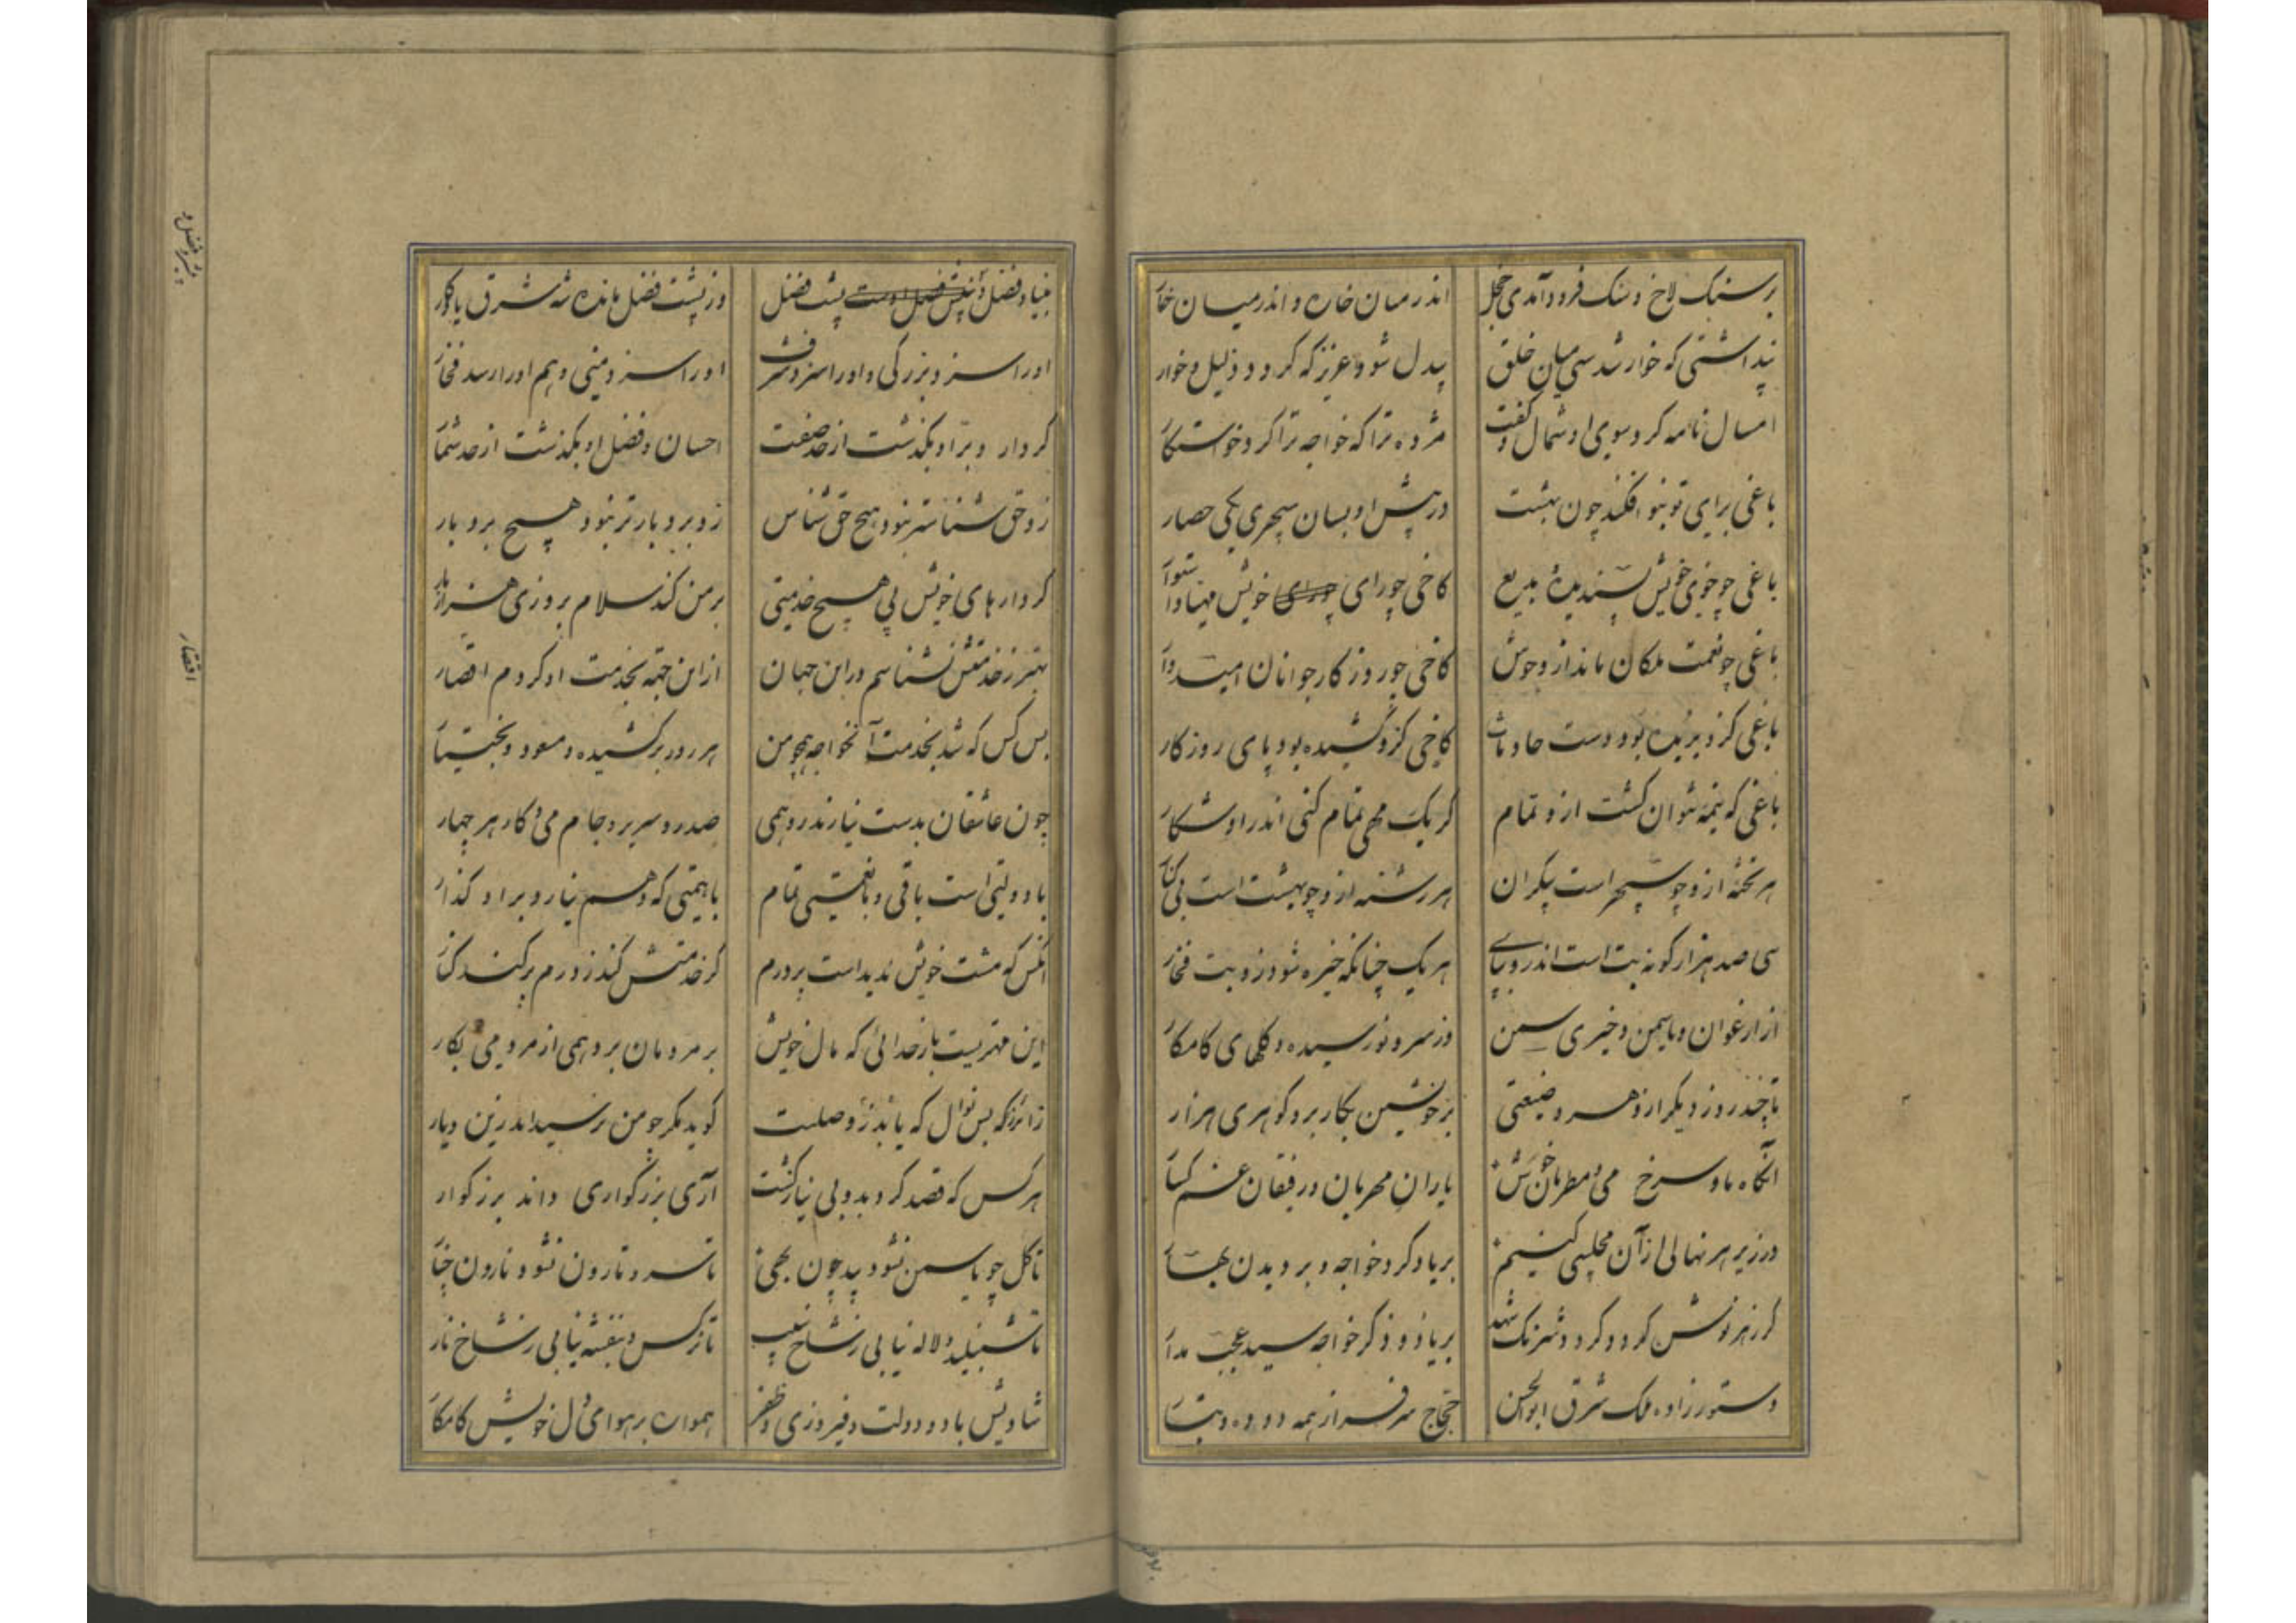 بر سنگ لاخ و سنگ فرود آمدی خجل
اندر میان خاره و اندر میان خار
پنداشتی که خوار شدستی میان خلق
بیدل شود عزیز که گردد ذلیل و خوار
امسال نامه کرد سوی او شمال و گفت
مژده ترا که خواجه ترا کرد خواستگار
باغی برای تو بنو افکند چون بهشت
در پیش او بسان سپهری یکی حصار
باغی چو خوی خویش پسندیده و بدیع
کاخی چو رای خویش مهیا و استوار
باغی چو نعمت ملکان مانداز و خوش
کاخی چو روزگار جوانان امیدوار
باغی کزو بریده بود دست حادثات
کاخی کزو کشیده بود پای روزگار
باغی که نیمه نتوان گشت ازو تمام
گر یک مهی تمام کنی اندر او شکار
هر تخته ازو چو سپهر است بیکران
هر رشته ازو چو بهشت است بی کنار
سی صد هزار گونه بت است اندرو بپای
هر یک چنانکه خیره شود زو بت فخار
از ارغوان و یاسمن و خیری سمن
وز سرو نورسیده و گلهای کامکار
تا چند روز دیگر از هر وضیعتی
بر خویشتن بکار برد گوهری هزار
آنگاه ما و سرخ می و مطربان خوش
یاران مهربان و رفیقان غم گسار
در زیر هر نهالی از آن مجلسی کنیم
بر یاد کرد خواجه و بر دیدن بهار
گر زهر نوش گردد و گردد شرنگ شهد
بر یاد و ذکر خواجه سید عجب مدار
دستور زاده ملک شرق ابوالحسن
حجاج سرفراز همه دوده و تبار
بنیاد فضل و پشت فضل
وز پشت فضل مانده شه شرق یادگار
او را سزد بزرگی و او را سزد شرف
او را سزد منی و هم او را رسد فخار
کردار و برّ او بگذشت از حد صفت
احسان و فضل او بگذشت از حد شمار
زو حق شناس‌تر نبود هیچ حق شناس
زو بردبارتر نبود هیچ بردبار
کردارهای خویش بی هیچ خدمتی
بر من کند سلام بروزی هزار بار
بهتر ز خدمتش نشناسم در این جهان
از این جهة بخدمت او کردم اقتصار
بس کس که شد بخدمت آنخواجه همچو من
هر روز برکشیده و مسعود و بختیار
چون عاشقان بدست نیارند رو همی
صدر و سریر و جام می و کار هر چهار
با دولتی است باقی و با نعمتی تمام
با همتی که وهم نیارد بر او گذار
آنکس که مشت خویش ندیداست پر درم
گر خدمتش کند ز درم پر کند کنار
این مهتریست بار خدائی که مال خویش
بر مردمان برد همی از مردمی بکار
زائر ز بس نوال که یابد زو صلت
گوید مگر چو من نرسید اندرین دیار
هر کس که قصد کرد بدو بی نیاز گشت
آری بزرگواری داند بزرگوار
تا گل چو یاسمن نشود بید چون بهی
تا سرو نارون نشود نارون چنار
تا شنبلید و لاله نیابی ز شاخ سیب
تا نرگس و بنفشه نیابی ز شاخ نار
شادیش باد و دولت و فیروزی و ظفر
همواره بر هوای دل خویش کامکار
اقتصار